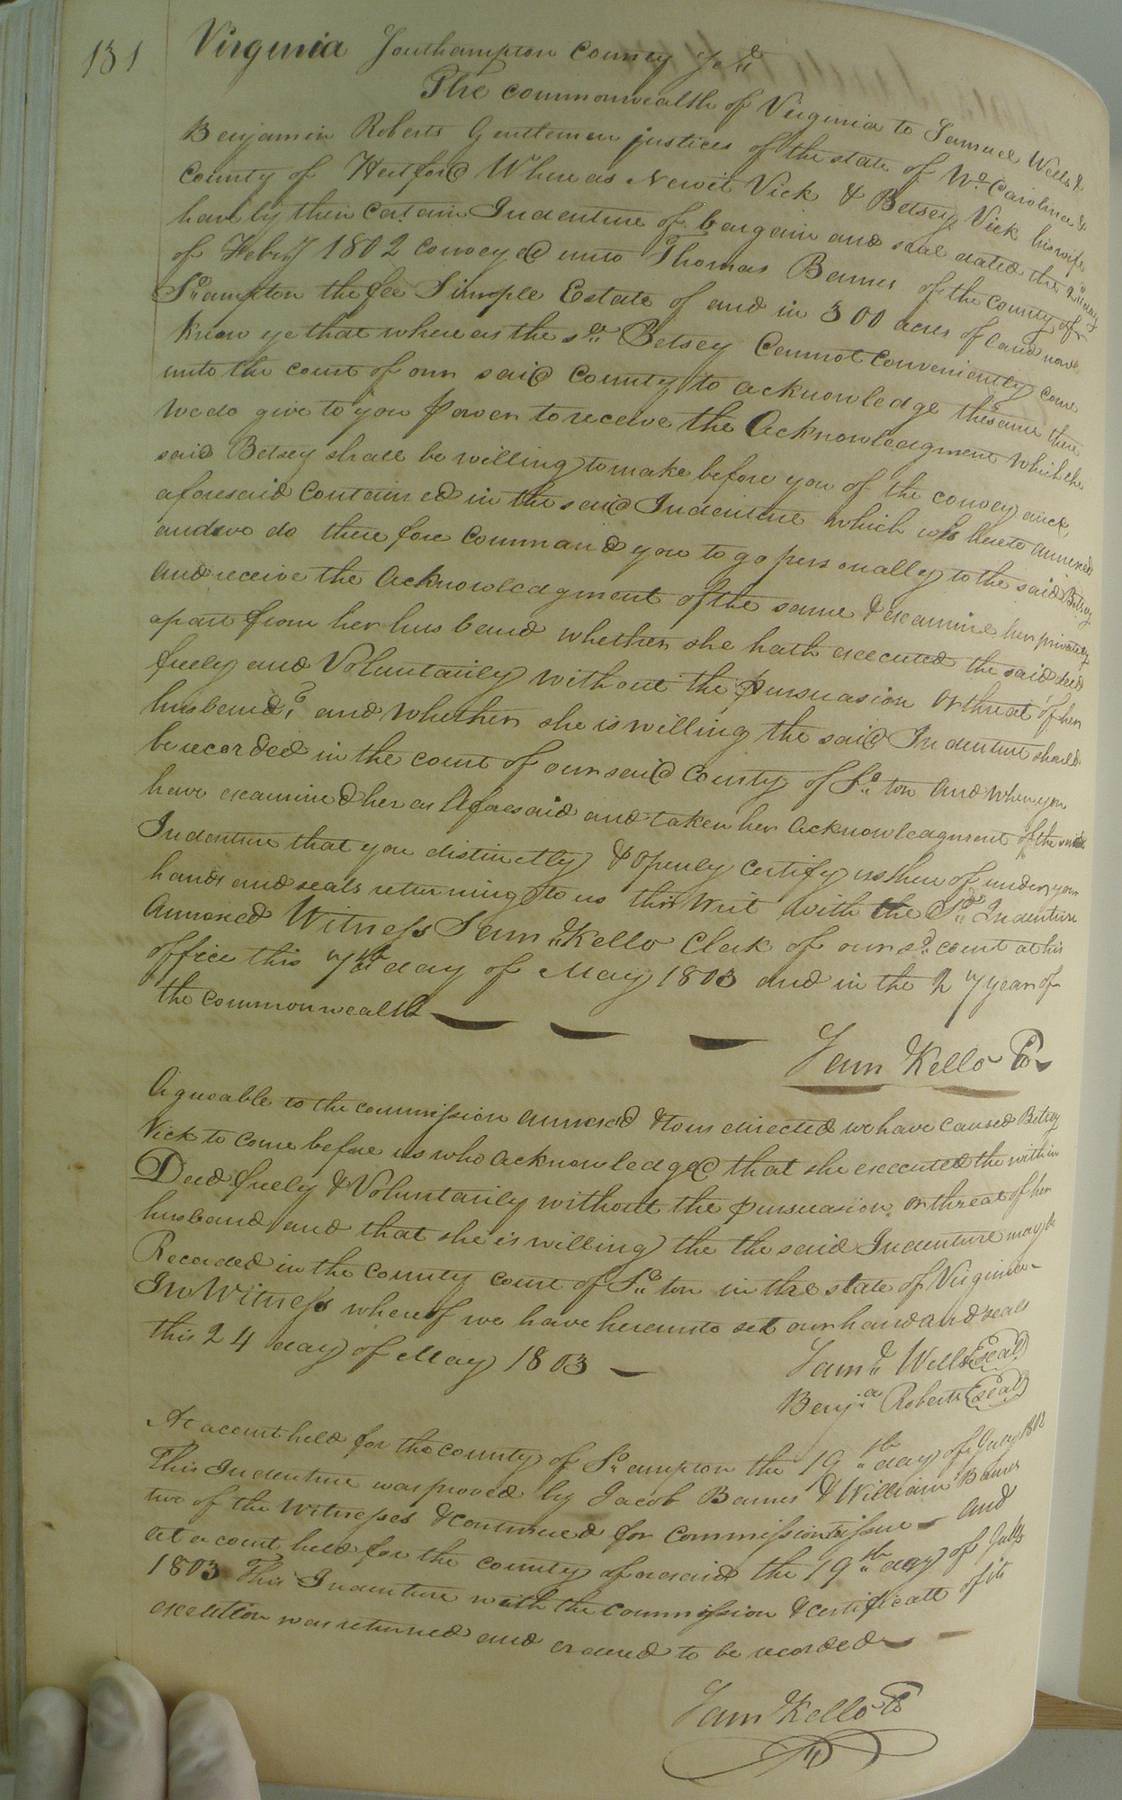 131
Virginia Southampton County
The commonwealth of Virginia to Samuel Wells &
Benjamin Roberts Gentlemen justices of the state of No. Carolina &
County of Hertford Whereas Newit Vick & Betsey Vick his wife
have by their certain Indenture of bargain and sale dated the
of Febry 1802 conveyed unto Thomas Barnes of the county of
So.ampton the fee Simple Estate of and in 300 acres of land now
know ye that where as the sd. Betsey Cannot conveniently come
unto the court of our said County to acknowledge the same there
we do give to you power to receive the Acknowledgment which the
said Betsey shall be willing to make before you of the conveyance
aforesaid contained in the said Indenture which is hereto annexed
and we do there fore command you to go personally to the said Betsey
and receive the acknowledgment of the same & examine her privately
apart from her husband whether she hath executed the said deed
freely and Voluntarily without the pursuasion or threat of her
husband, and whether she is willing the said Indenture should
be recorded in the court of our said County of So.ton and when you
have examined her as Aforesaid and taken her acknowledgment of the said
Indenture that you distinctly & openly certify us there of under your
hands and seals returning to us this writ with the Sd. Indenture
Annexed Witness Sam. Kello Clerk of our sd. court at his
office this 7th day of May 1803 and in the 27 year of
the commonwealth
Sam Kello Co
Agreeable to the commission annexed & to us directed we have caused Betsey
Vick to come before us who acknowledged that she executed the with in
Deed freely & Voluntarily without the pursuasion or threat of her
husband and that she is willing the the said Indenture may be
Recorded in the County court of So.ton in the state of Virginia
In Witness whereof we have hereunto set our hand and seals
this 24 day of May 1803
Saml. Wells (Seal)
Benja. Roberts (Seal)
At a court held for the county of So.ampton the 19th day of
This Indenture was proved by Jacob Barnes & William Barnes
two of the Witnesses & continued for commission to issue and
at a court held for the county aforesaid the 19th day of July
1803 This Indenture with the commission & certificate of its
execution was returned and ordered to be recorded
Sam Kello Co